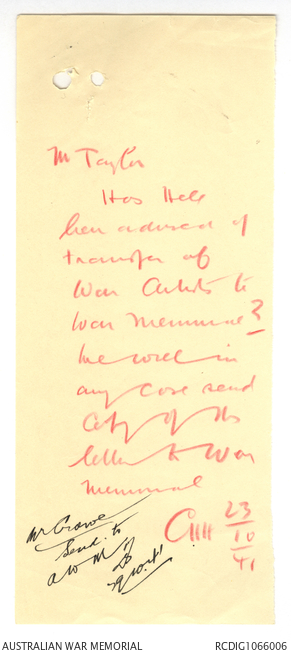 Mr Taylor
Has Hele
been advised of
transfer of
War Artists to
War Memorial?
We will in
any case send
Copy of this
letter to War
Memorial
23
10
41
Mr Crowe
Send to
AWM
AUSTRALIAN WAR MEMORIAL
RCDIG1066006